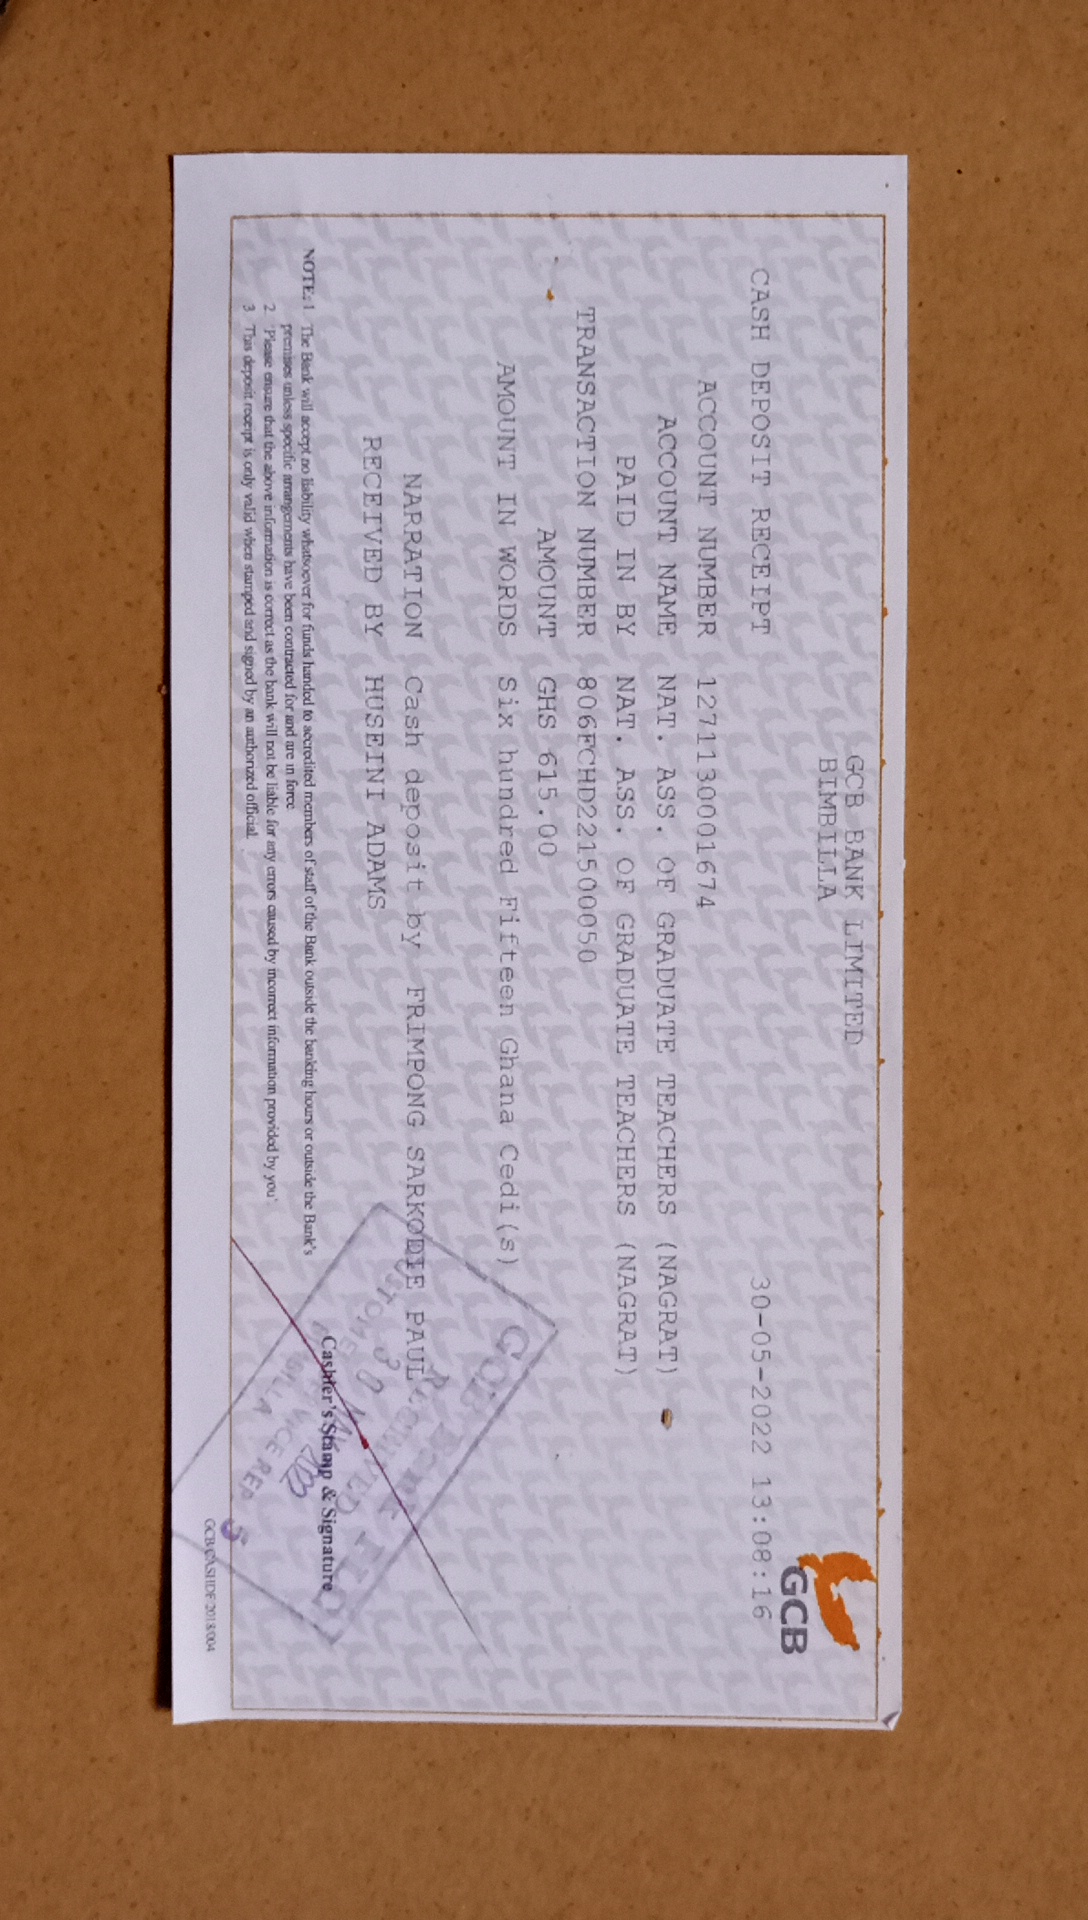 GCB BANK LIMITED
BIMBILLA
GCB
CASH DEPOSIT RECEIPT 30-05-2022 13:08:16
ACCOUNT NUMBER 1271130001674
ACCOUNT NAME NAT. ASS. OF GRADUATE TEACHERS (NAGRAT)
PAID IN BY NAT. ASS. OF GRADUATE TEACHERS (NAGRAT)
TRANSACTION NUMBER 806FCHD221500050
AMOUNT GHS 615.00
AMOUNT IN WORDS Six hundred Fifteen Ghana Cedi(s)
NARRATION Cash deposit by FRIMPONG SARKODIE PAUL
RECEIVED BY HUSEINI ADAMS
NOTE: 1 The Bank will accept no liability whatsoever for funds handed to accredited members of staff of the Bank outside the banking hours or outside the Bank's
premises unless specific arrangements have been contracted for and are in force
2 'Please ensure that the above information is correct as the bank will not be liable for any errors caused by incorrect information provided by you'.
3 This deposit receipt is only valid when stamped and signed by an authorized official.
Cashier's Stamp & Signature
GCB
GCB/CASHDP/2018/004